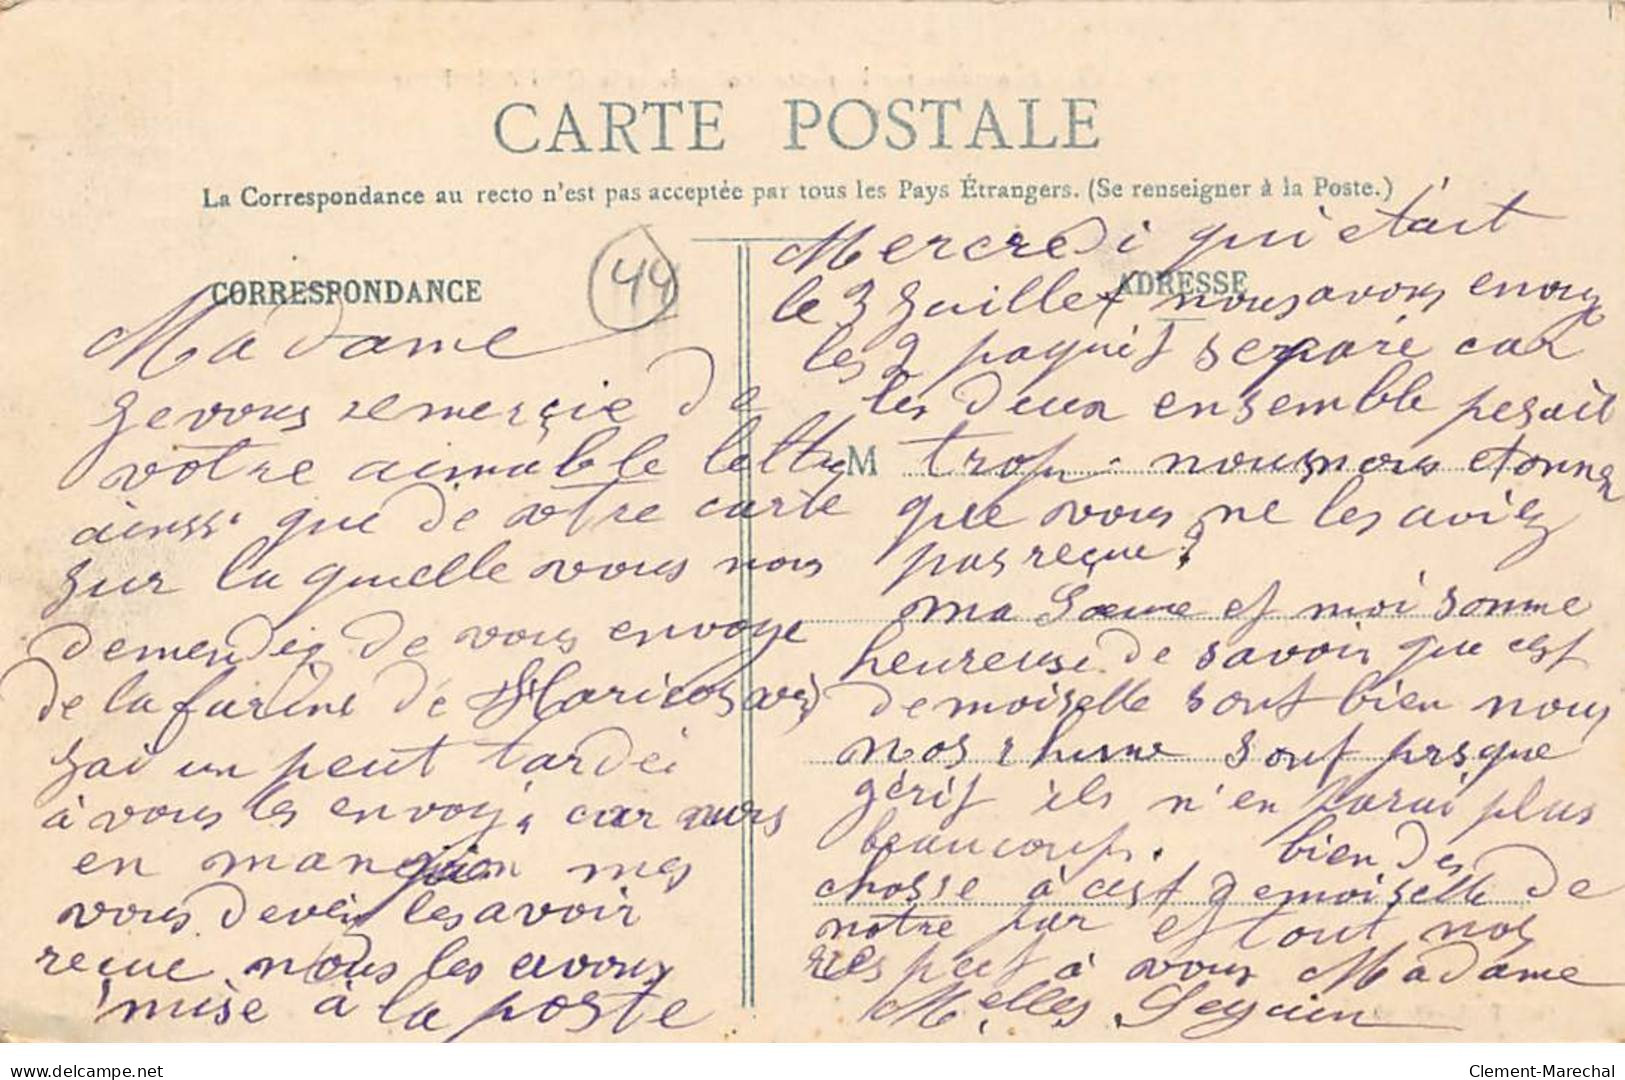 CARTE POSTALE
La Correspondance au recto n'est pas acceptée par tous les Pays Étrangers. (Se renseigner à la Poste.)
CORRESPONDANCE
44
Madame
Je vous remerçie de
votre aimable lettre
ainssi que de votre carte
sur la quelle vous nous
demendez de vous envoye
de la farine de Haricos
J'ai un peut tardéi
à vous les envoyz car
en mes
vous devéiz les avoir
reçue nous les avons
mise à la poste
ADRESSE
M
Mercredi qui était
le 3 Juillet nous avons envoye
les 2 paquet separé car
les deux ensemble pesait
trop. nous nous etonnez
que vous ne les aviez
pas reçue?
ma Sœure et moi somme
heureuse de savoir que cest
demoiselle sont bien nous
nos rhume sont presque
gérit ils n'en parai plus
beaucoup. bien des
chosse à cest demoiselle de
notre par et tout nos
respect à vous Madame
Melles Seguin
Clement-Marechal